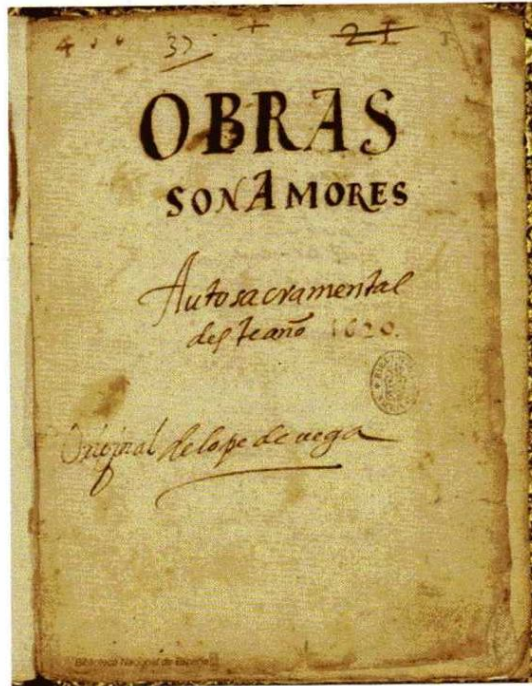 4 0 6 37. + 21
OBRAS
SON AMORES
Auto sacramental
deste año 1620.
Original de lope de vega
Biblioteca Nacional de España